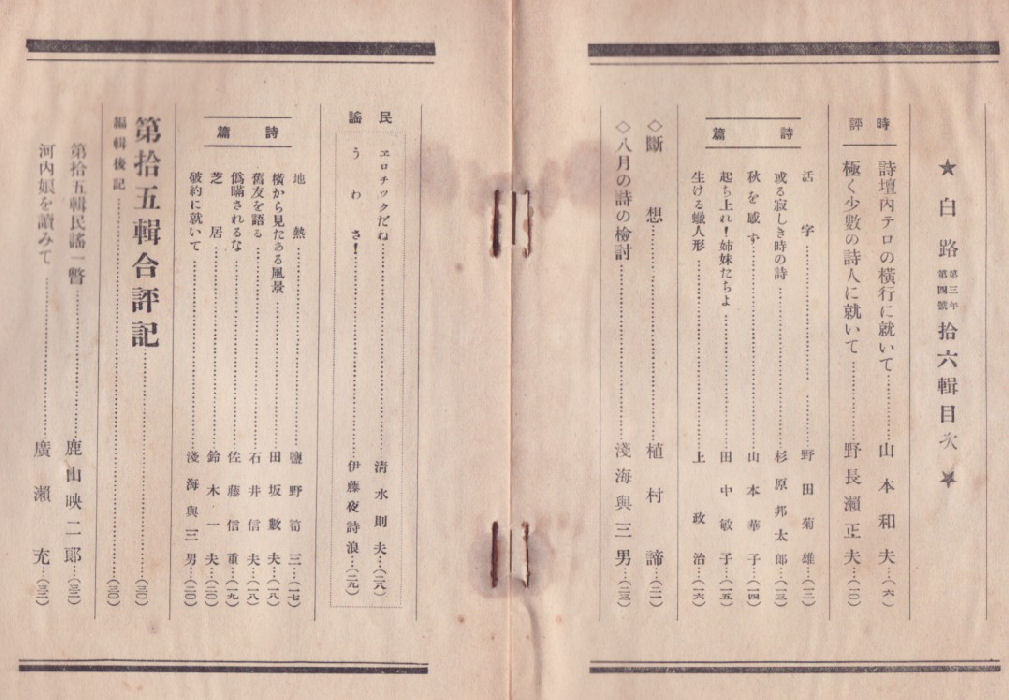 ★白路 第三年第四號 拾六輯目次★
時評
詩壇內テロの橫行に就いて……山本和夫…(六)
極く少數の詩人に就いて……野長瀨正夫…(一〇)
詩篇
活字……野田菊雄…(一二)
或る寂しき時の詩……杉原邦太郎…(一三)
秋を感ず……山本華子…(一四)
起ち上れ!姉妹たちよ……田中敏子…(一五)
生ける蠟人形……上政治…(一六)
◇斷想……植村諦…(二一)
◇八月の詩の檢討……淺海與三男…(二三)
民謠
エロチックだね……清水則夫…(二八)
うわさ!……伊藤夜詩浪…(二九)
詩篇
地熱……鹽野筍三…(一七)
橫から見たある風景……田坂數夫…(一八)
舊友を語る……石井信夫…(一八)
僞瞞されるな……佐藤信重…(一九)
芝居……鈴木一夫…(二〇)
破約に就いて……淺海與三男…(二〇)
第拾五輯合評記……(三〇)
編輯後記……(三〇)
第拾五輯民謠一瞥……鹿山映二郎…(三二)
河內娘を讀みて……廣瀨充…(三二)